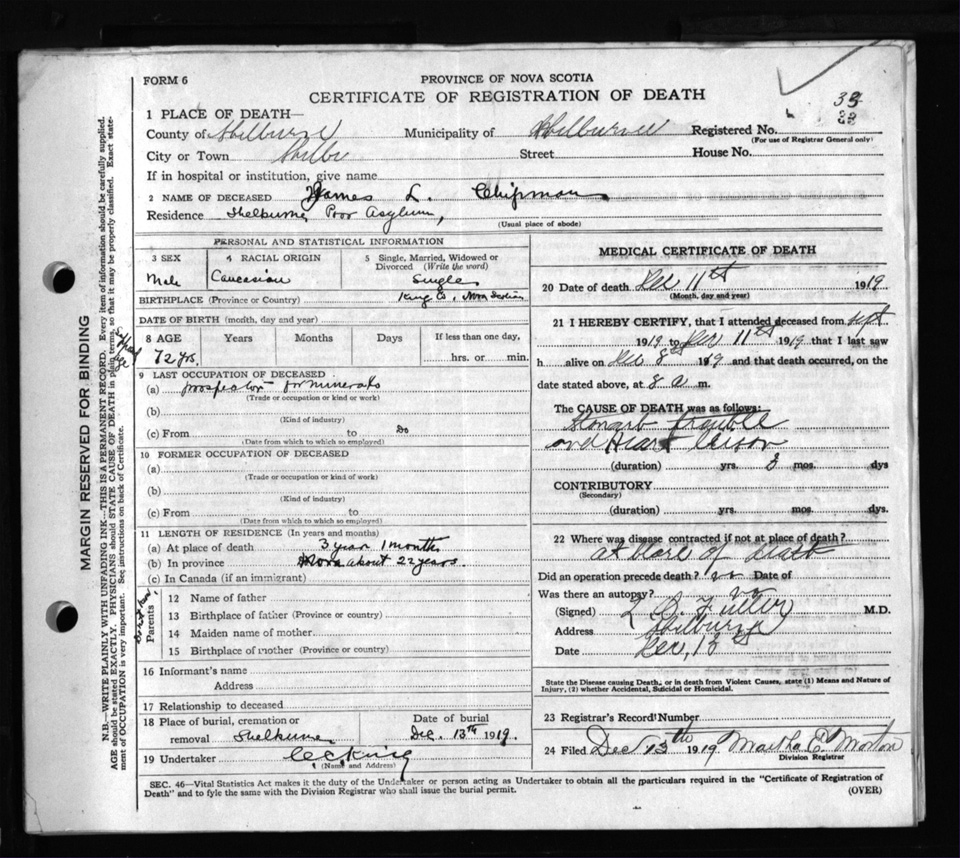 FORM 6
PROVINCE OF NOVA SCOTIA
CERTIFICATE OF REGISTRATION OF DEATH
1 PLACE OF DEATH—
County of Shelburne Municipality of Shelburne Registered No. 33
33
(For use of Registrar General only)
City or Town Shelb Street House No.
If in hospital or institution, give name
2 NAME OF DECEASED James L. Chipman
Residence Shelburne Poor Asylum,
(Usual place of abode)
PERSONAL AND STATISTICAL INFORMATION
3 SEX
Male
4 RACIAL ORIGIN
Caucasian
5 Single, Married, Widowed or
Divorced (Write the word)
Single
BIRTHPLACE (Province or Country) King Co, Nova Scotia
DATE OF BIRTH (month, day and year)
8 AGE Years Months Days If less than one day,
72 yrs. hrs. or min.
9 LAST OCCUPATION OF DECEASED
(a) prospector for minerals
(Trade or occupation or kind or work)
(b)
(Kind of industry)
(c) From to Do
(Date from which to which so employed)
10 FORMER OCCUPATION OF DECEASED
(a)
(Trade or occupation or kind of work)
(b)
(Kind of industry)
(c) From to
(Date from which to which so employed)
11 LENGTH OF RESIDENCE (In years and months)
(a) At place of death 3 year 1 months
(b) In province about 22 years.
(c) In Canada (if an immigrant)
Parents
12 Name of father
13 Birthplace of father (Province or country)
14 Maiden name of mother
15 Birthplace of mother (Province or country)
16 Informant's name
Address
17 Relationship to deceased
18 Place of burial, cremation or
removal Shelburne
Date of burial
Dec. 13th 1919.
19 Undertaker C C King
(Name and Address)
MEDICAL CERTIFICATE OF DEATH
20 Date of death Dec 11th 1919
(Month, day and year)
21 I HEREBY CERTIFY, that I attended deceased from Sept
1919 to Dec 11th 1919 that I last saw
h alive on Dec 8 1919 and that death occurred, on the
date stated above, at 8 a m.
The CAUSE OF DEATH was as follows:
Stomach trouble
and Heart
(duration) yrs. 3 mos. dys
CONTRIBUTORY
(Secondary)
(duration) yrs. mos. dys.
22 Where was disease contracted if not at place of death?
at place of death
Did an operation precede death? no Date of
Was there an autopsy? no
(Signed) Fuller M.D.
Address Shelburne
Date Dec, 13
State the Disease causing Death, or in death from Violent Causes, state (1) Means and Nature of
Injury, (2) whether Accidental, Suicidal or Homicidal.
23 Registrar's Record Number
24 Filed Dec 13th 1919 Martha C. Morton
Division Registrar
SEC. 46—Vital Statistics Act makes it the duty of the Undertaker or person acting as Undertaker to obtain all the particulars required in the "Certificate of Registration of
Death" and to fyle the same with the Division Registrar who shall issue the burial permit.
(OVER)
MARGIN RESERVED FOR BINDING
N.B.—WRITE PLAINLY WITH UNFADING INK—THIS IS A PERMANENT RECORD. Every item of information should be carefully supplied.
AGE should be stated EXACTLY. PHYSICIANS should STATE CAUSE OF DEATH in plain terms, so that it may be properly classified. Exact state-
ment of OCCUPATION is very important. See instructions on back of Certificate.